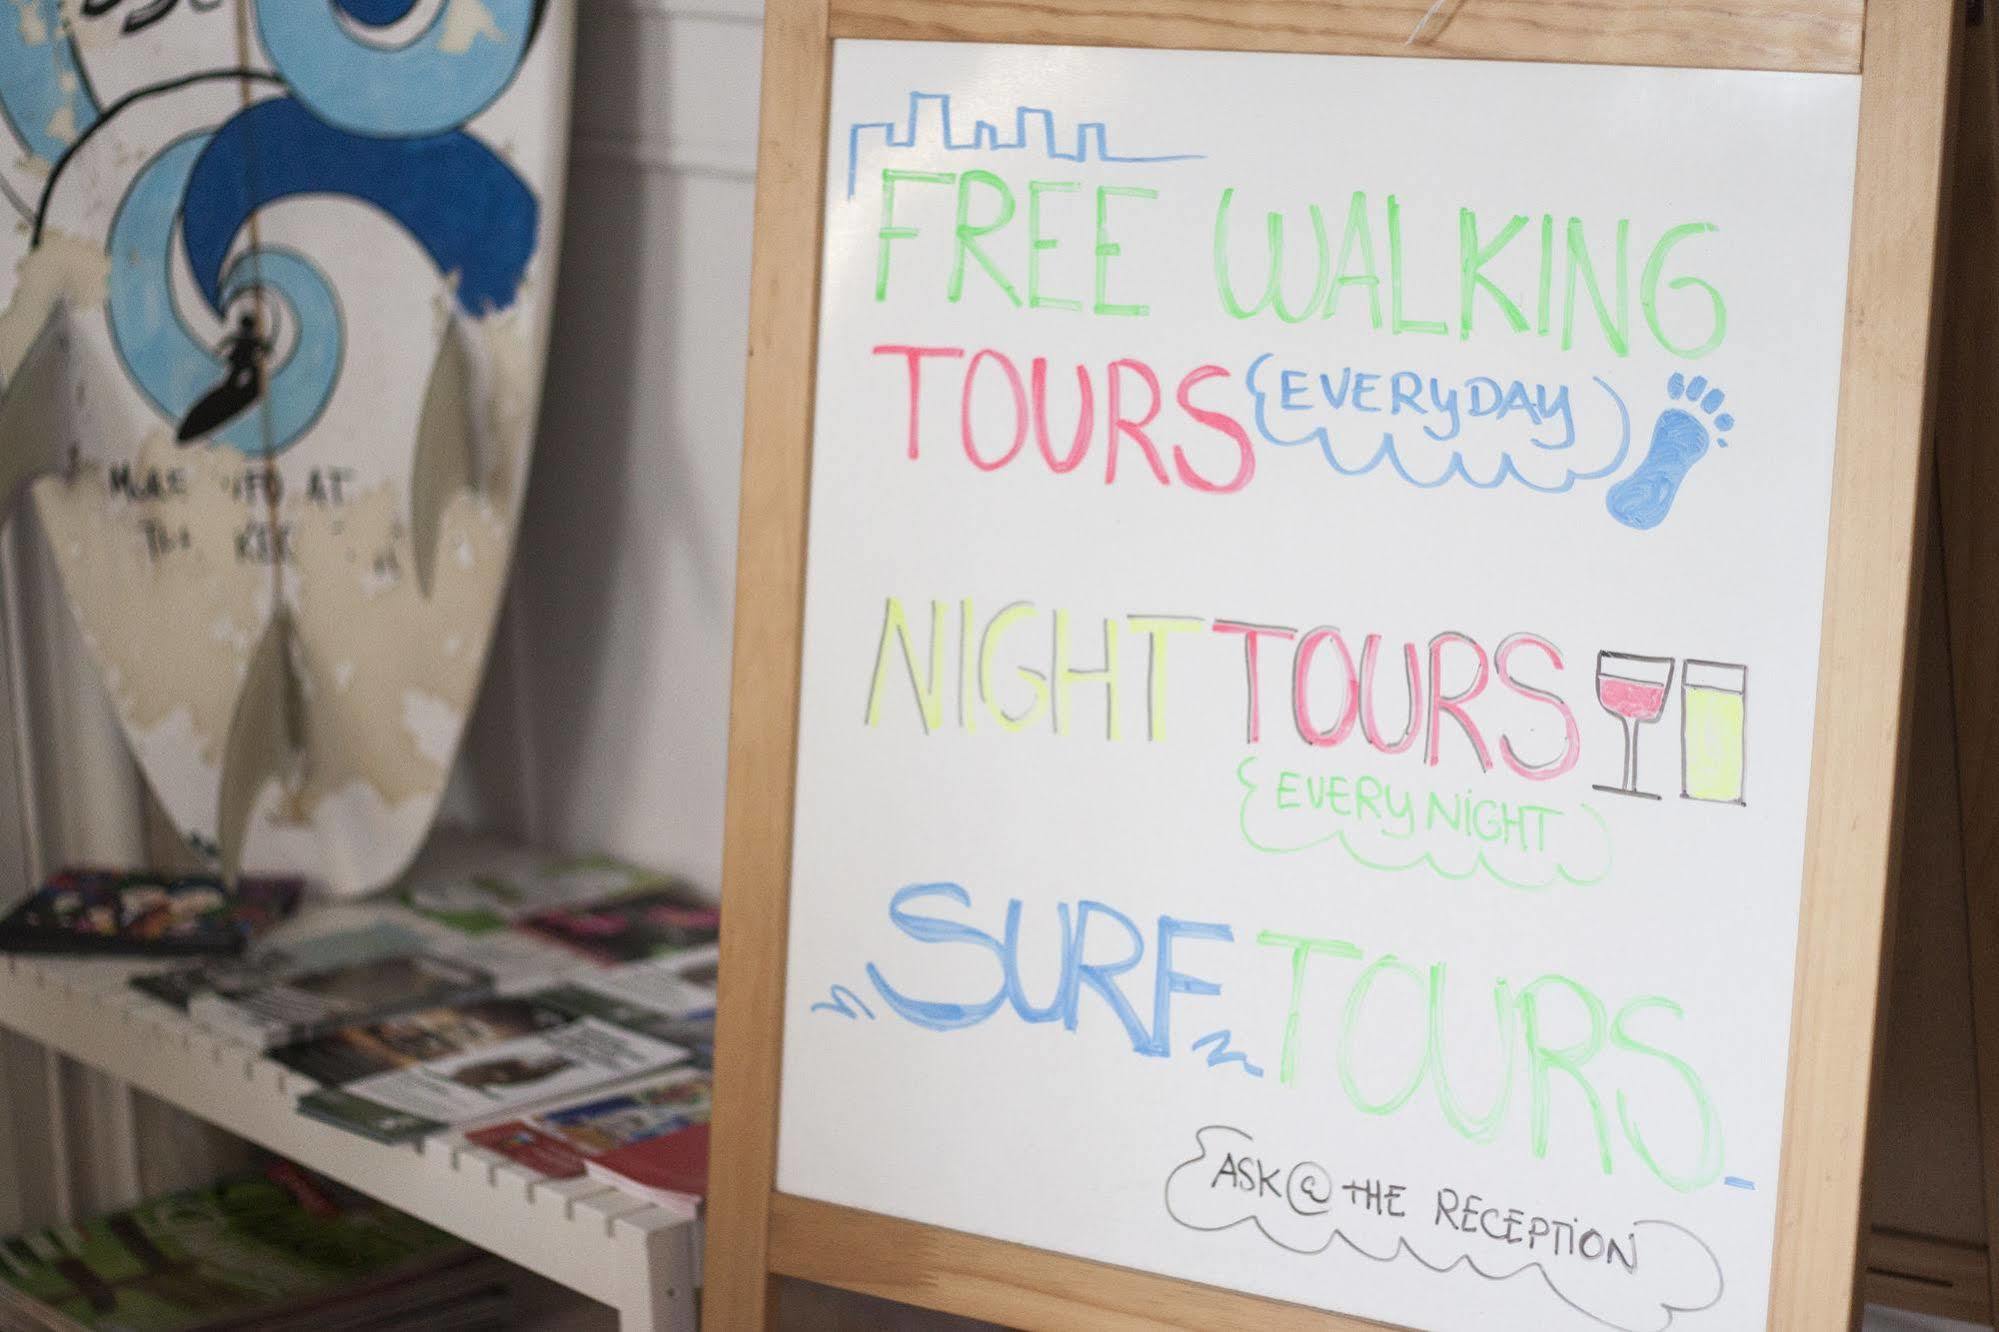 FREE WALKING
TOURS (EVERYDAY)
NIGHT TOURS
EVERY NIGHT
SURF TOURS
ASK @ THE RECEPTION
AT